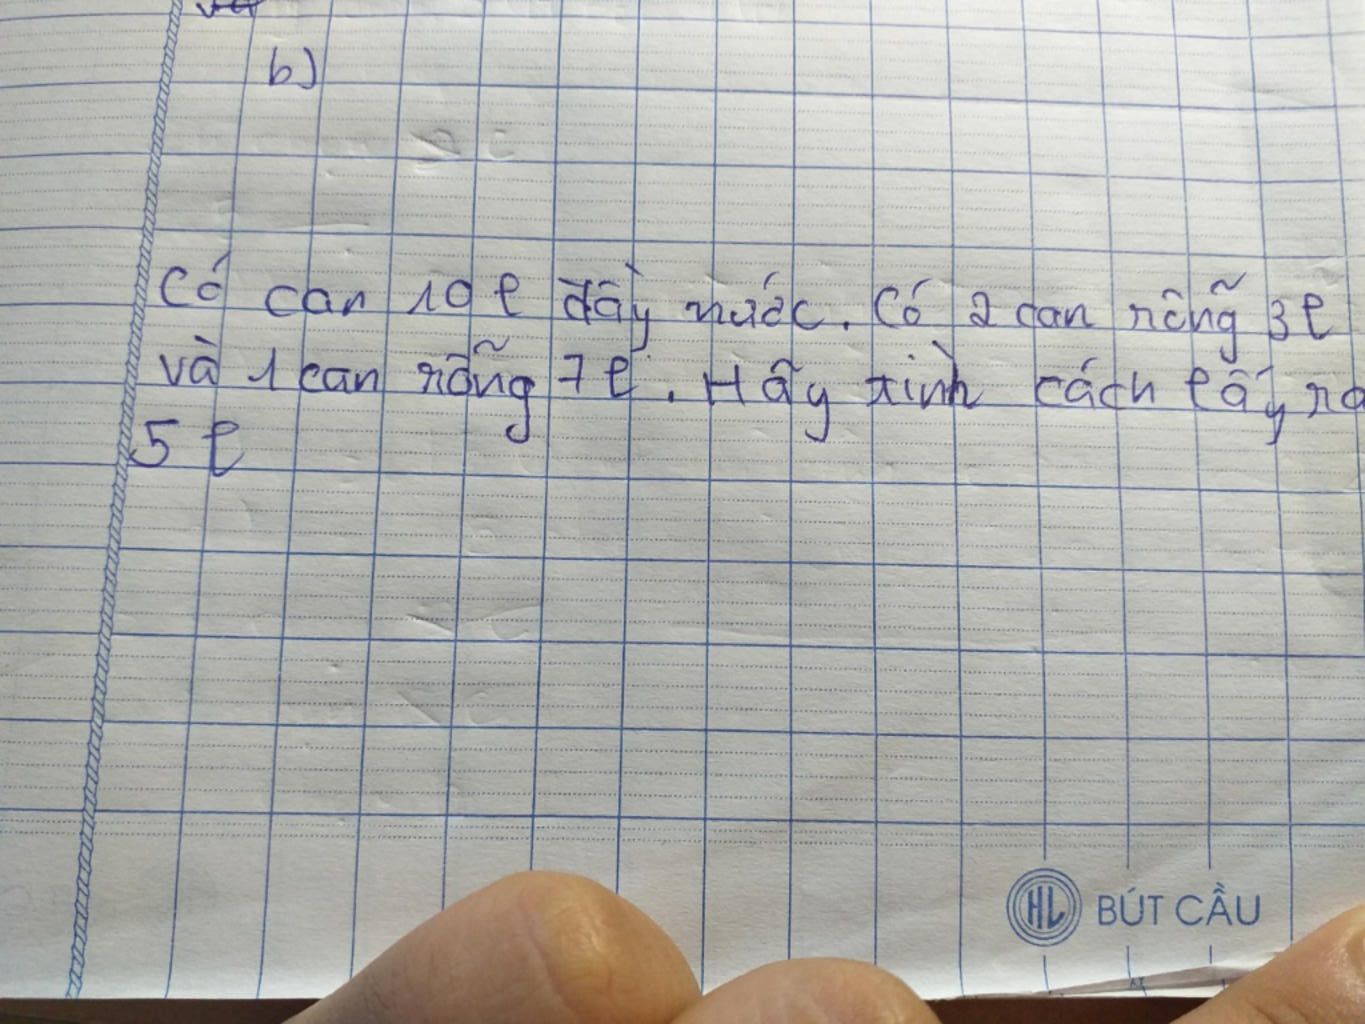 b)
Có can 10 l đầy nước. Có 2 can rỗng 3l
và 1 can rỗng 7l. Hãy tình cách lấy ra
5 l
HL BÚT CẦU